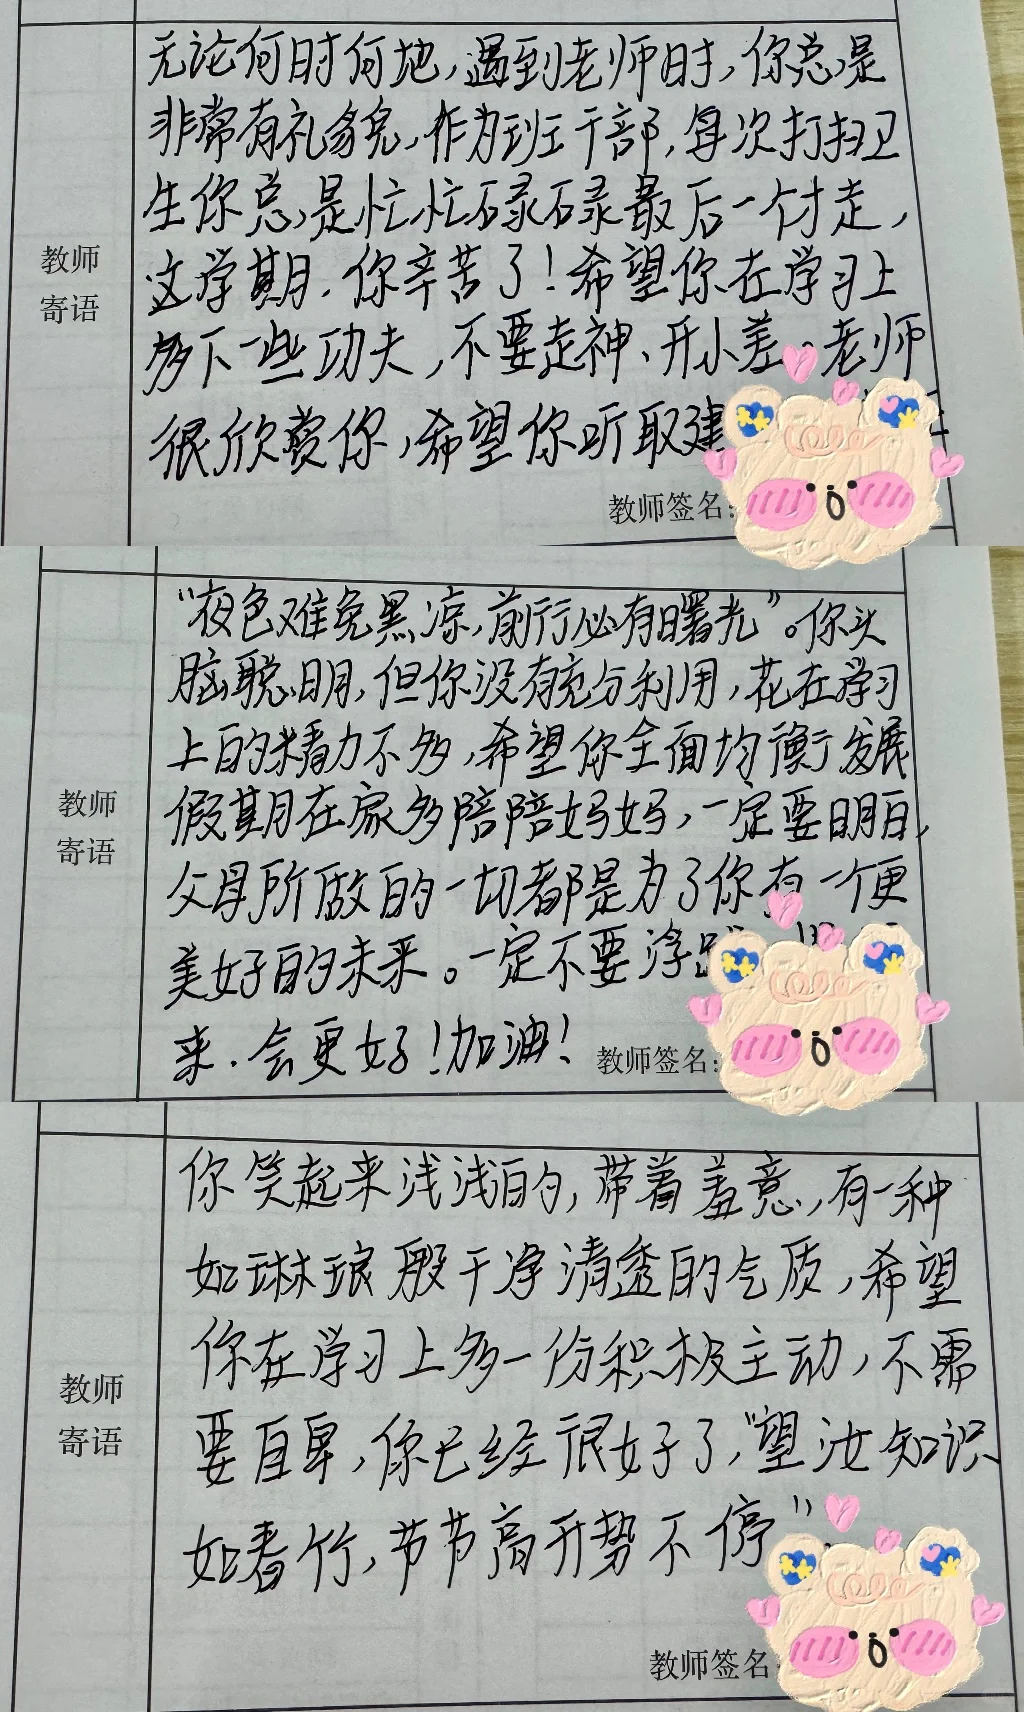 无论何时何地,遇到老师时,你总是
非常有礼貌,作为班干部,每次打扫卫
生你总是忙忙碌碌最后一个才走,
教师
寄语
这学期,你辛苦了!希望你在学习上
多下一些功夫,不要走神、开小差。老师
很欣赏你,希望你听取建
教师签名:
“夜色难免黑凉,前行必有曙光”。你头
脑聪明,但你没有充分利用,花在学习
上的精力不多,希望你全面均衡发展
教师
寄语
假期在家多陪陪妈妈,一定要明白,
父母所做的一切都是为了你有一个更
美好的未来。一定不要浮躁
来,会更好!加油!
教师签名:
你笑起来浅浅的,带着羞意,有一种
如琳琅般干净清透的气质,希望
你在学习上多一份积极主动,不需
教师
寄语
要自卑,你已经很好了,“望汝知识
如春竹,节节高升势不停”
教师签名: